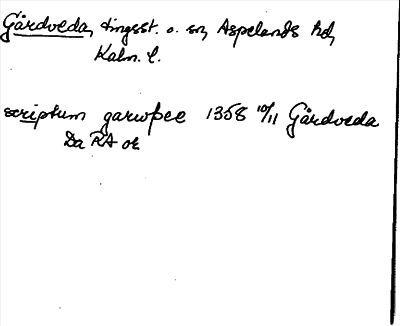 Gårdveda, tingsst. o. sn, Aspelands hd,
Kalm. l.
scriptum garwþee 1358 10/11 Gårdveda
Da RA or